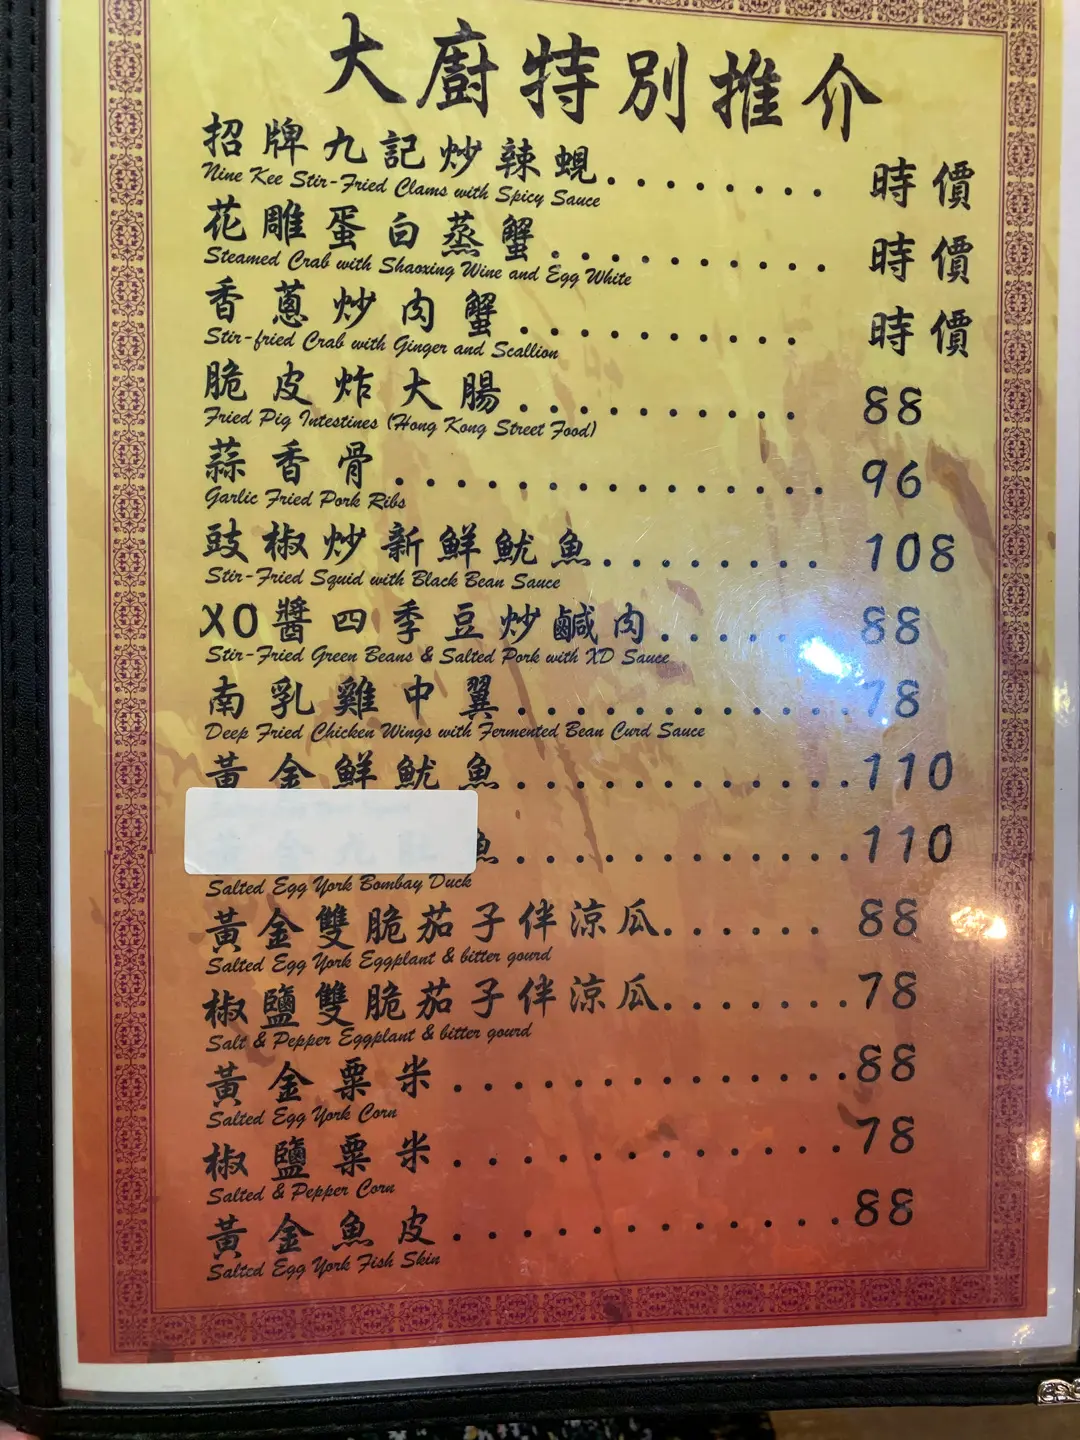 大廚特別推介
招牌九記炒辣蜆........ 時價
Nine Kee Stir-Fried Clams with Spicy Sauce
花雕蛋白蒸蟹.......... 時價
Steamed Crab with Shaoxing Wine and Egg White
香蔥炒肉蟹.......... 時價
Stir-fried Crab with Ginger and Scallion
脆皮炸大腸.......... 88
Fried Pig Intestines (Hong Kong Street Food)
蒜香骨............... 96
Garlic Fried Pork Ribs
豉椒炒新鮮魷魚........ 108
Stir-Fried Squid with Black Bean Sauce
XO醬四季豆炒鹹肉...... 88
Stir-Fried Green Beans & Salted Pork with XD Sauce
南乳雞中翼............ 78
Deep Fried Chicken Wings with Fermented Bean Curd Sauce
黃金鮮魷魚............ 110
魚............ 110
Salted Egg York Bombay Duck
黃金雙脆茄子伴涼瓜...... 88
Salted Egg York Eggplant & bitter gourd
椒鹽雙脆茄子伴涼瓜....... 78
Salt & Pepper Eggplant & bitter gourd
黃金粟米.............. 88
Salted Egg York Corn
椒鹽粟米.............. 78
Salted & Pepper Corn
黃金魚皮.............. 88
Salted Egg York Fish Skin